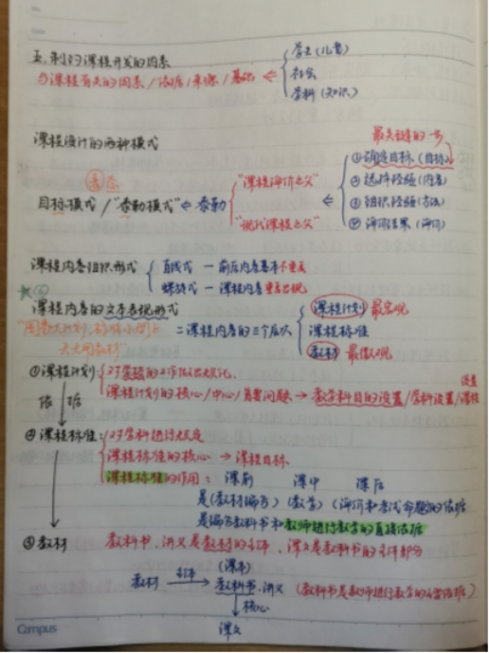 五、制约课程开发的因素
与课程有关的因素/依据/来源/基础 ⇐
学生(儿童)
社会
学科(知识)
课程设计的两种模式
最关键的一步
①确定目标(目标)
②选择经验(内容)
③组织经验(方法)
④评价结果(评价)
目标模式/"泰勒模式" ⇐ 泰勒
"课程评价之父"
"现代课程之父"
课程内容组织形式
直线式 — 前后内容基本不重复
螺旋式 — 课程内容重复出现
课程内容的文本表现形式
= 课程内容的三个层次
课程计划 最宏观
课程标准
教材 最微观
①课程计划:
对学校的工作做出规定化
课程计划的核心/中心/首要问题 → 教学科目的设置/学科设置/课程设置
依据
②课程标准:
对学科进行规定
课程标准的核心 → 课程目标
课程标准的作用: 课前 课中 课后
是(教材编写)(教学)(评价和考试命题)的依据
是编写教科书和教师进行教学的直接依据
③教材
教科书、讲义是教材的主体, 课文是教科书的主体部分
教材 主体→ 教科书、讲义 (教科书是教师进行教学的主要依据)
(课本)
↓核心
课文
Campus